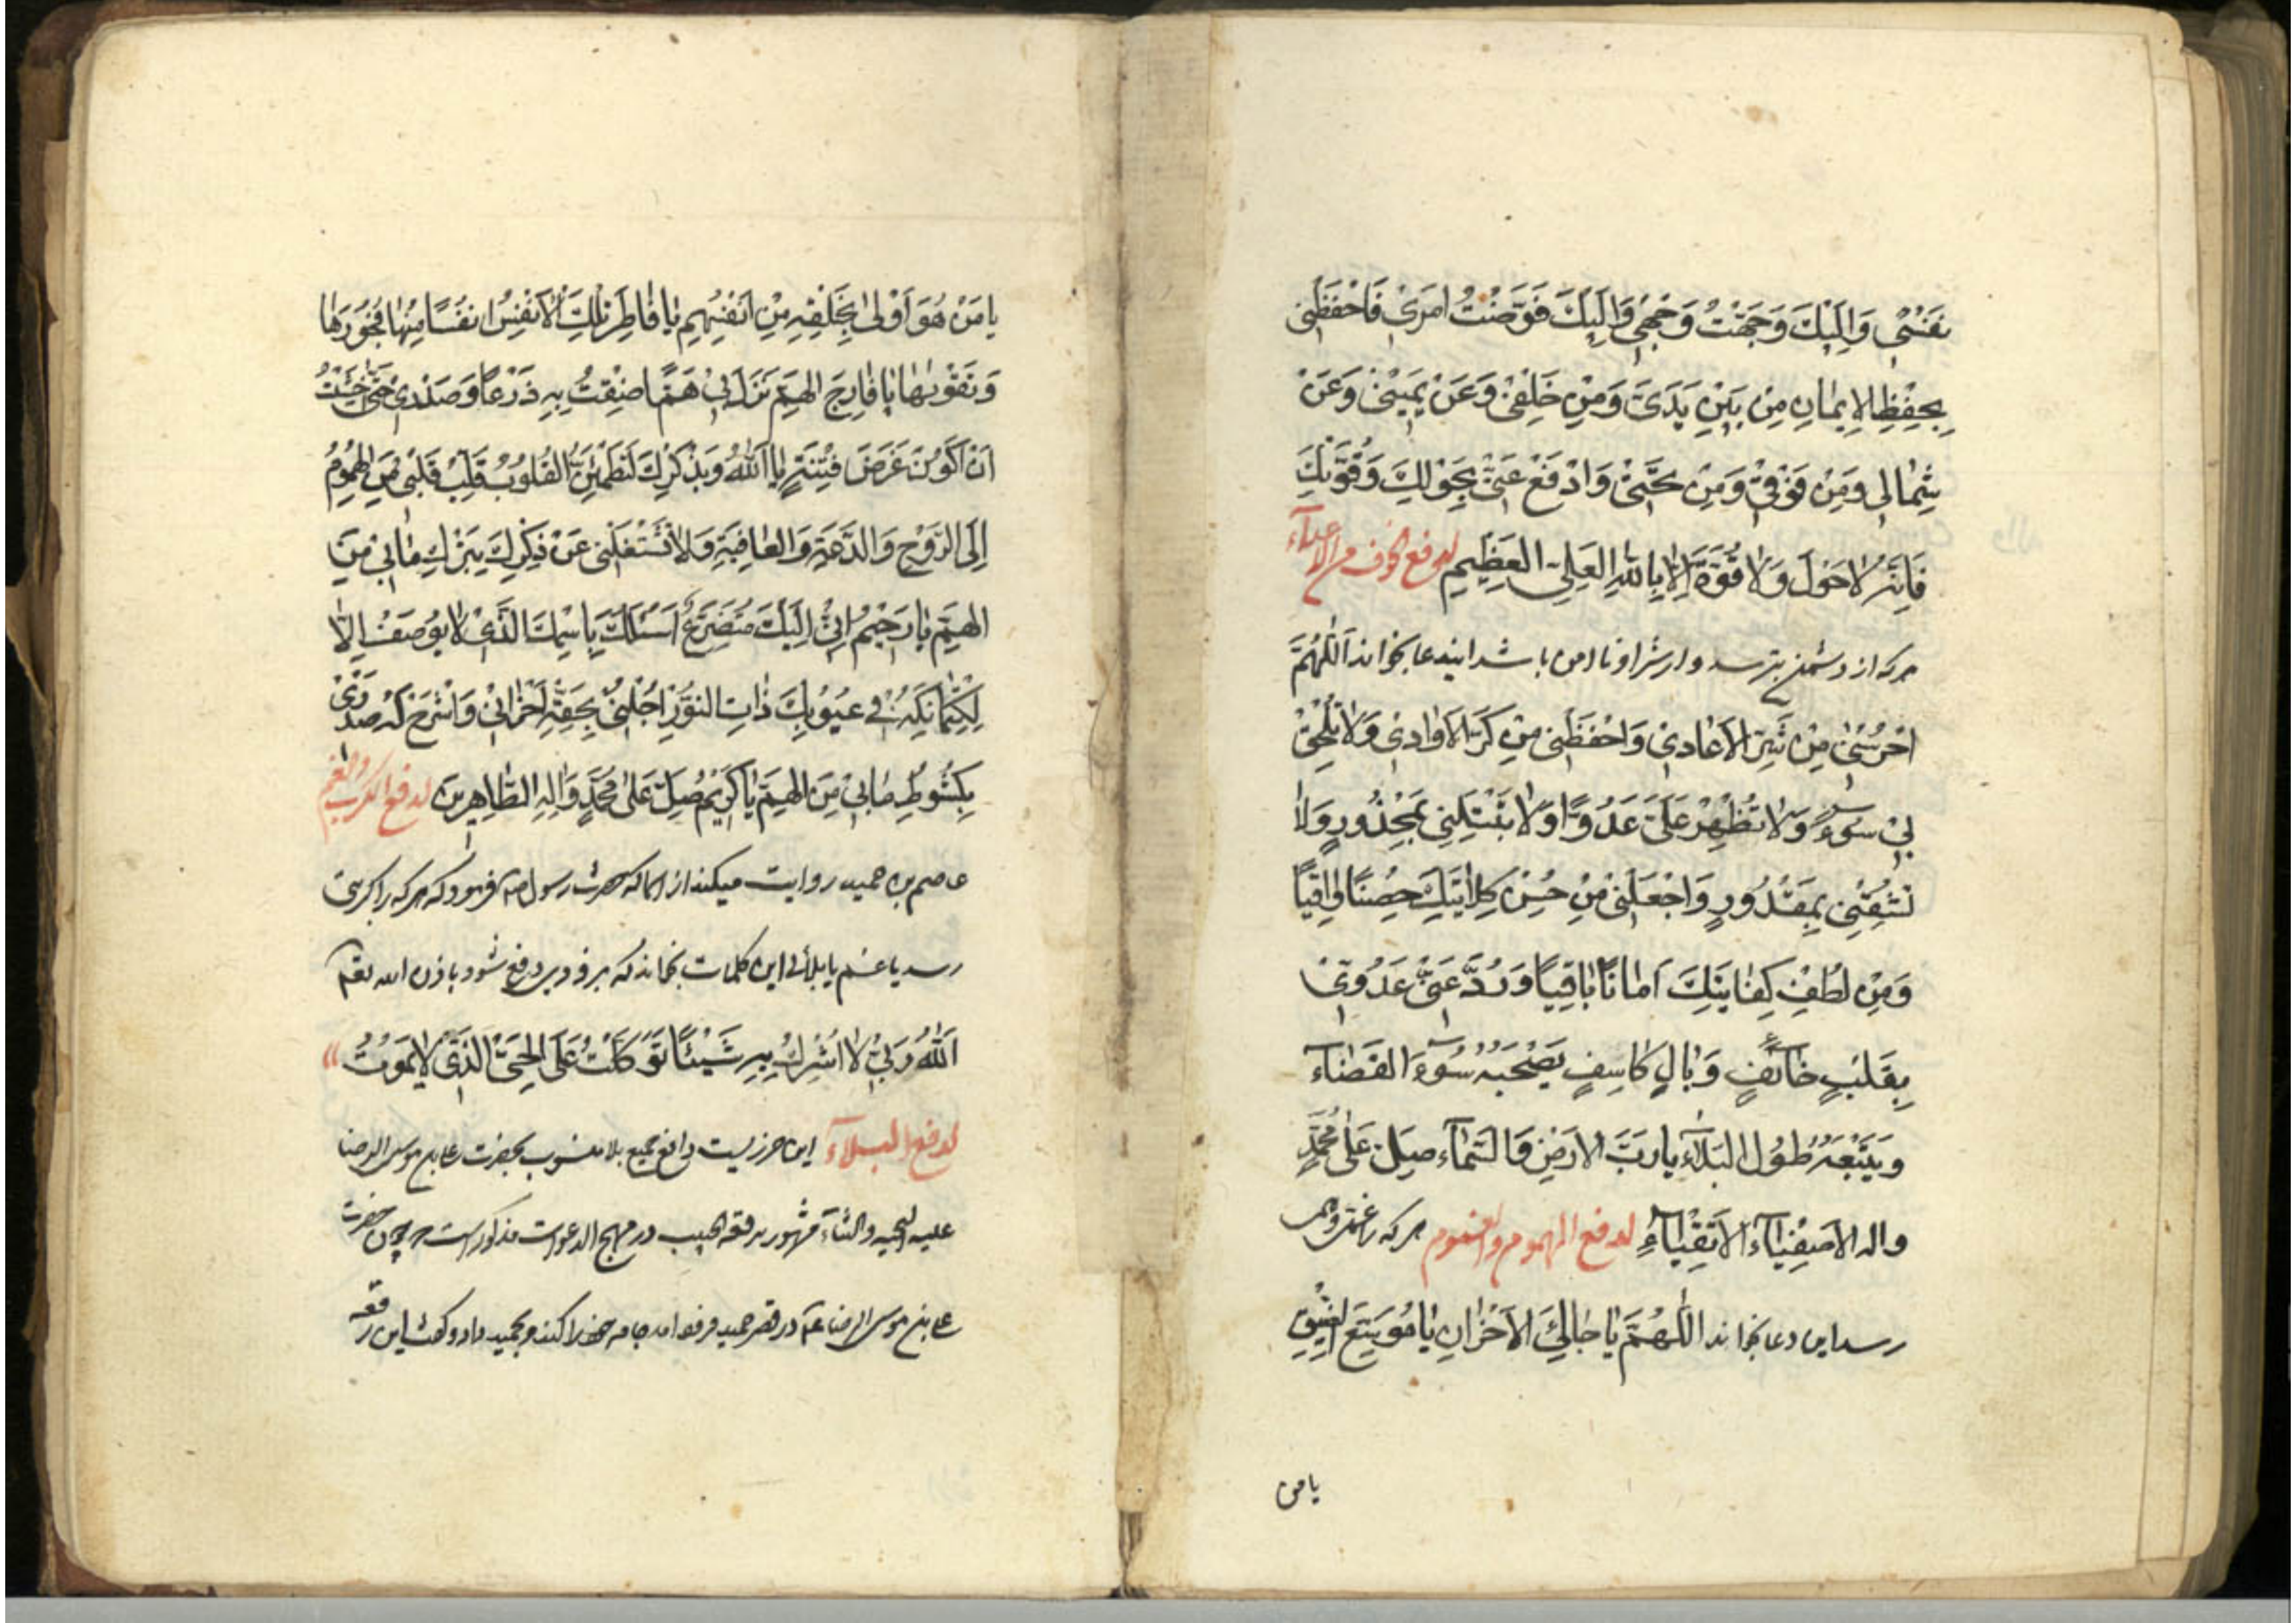 نَفْسِي وَاِلَيْكَ وَجَّهْتُ وَجْهِي وَاِلَيْكَ فَوَّضْتُ اَمْرِي فَاحْفَظْنِي
بِحِفْظِ الاِيمَانِ مِنْ بَيْنِ يَدَيَّ وَمِنْ خَلْفِي وَعَنْ يَمِينِي وَعَنْ
شِمَالِي وَمِنْ فَوْقِي وَمِنْ تَحْتِي وَادْفَعْ عَنِّي بِحَوْلِكَ وَقُوَّتِكَ
فَاِنَّهُ لَا حَوْلَ وَلَا قُوَّةَ اِلَّا بِاللهِ العَلِيِّ العَظِيمِ لدفع خوف من الاعداء
هر که از دشمنی بترسد و از شر او نا امن باشد ایندعا بخواند اَللّهُمَّ
احْرُسْنِي مِنْ الاَعَادِي وَاحْفَظْنِي مِنْ وَلَا
بِي سُوءً وَلَا تُظْهِرْ عَلَيَّ عَدُوًّا وَلَا تَبْتَلِنِي بِمَحْذُورٍ وَلَا
بِمَقْدُورٍ وَاجْعَلْنِي مِنْ حُسْنِ كِلَايَتِكَ حِصْنًا وَاقِيًا
وَمِنْ لُطْفِ كِفَايَتِكَ اَمَانًا بَاقِيًا وَرُدَّ عَنِّي عَدُوِّي
بِقَلْبٍ خَائِفٍ وَبَالٍ كَاسِفٍ يَصْحَبُهُ سُوءُ القَضَاءِ
وَيَتْبَعُهُ طُولُ البَلَاءِ يَا رَبَّ الاَرْضِ وَالسَّمَاءِ صَلِّ عَلَى مُحَمَّدٍ
وَالِهِ الاَصْفِيَاءِ الاَتْقِيَاءِ لدفع الهموم والغموم هر که را غمی و همی
رسد این دعا بخواند اَللّهُمَّ يَا جَالِيَ الاَحْزَانِ يَا مُوَسِّعَ الضِّيقِ
يا من
يَا مَنْ هُوَ اَوْلَى بِخَلْقِهِ مِنْ اَنْفُسِهِمْ يَا فَاطِرَ تِلْكَ الاَنْفُسِ اَنْفُسًا مُلْهِمَهَا فُجُورَهَا
وَتَقْوَيهَا يَا فَارِجَ الهَمِّ نَزَلَ بِي هَمًّا ضِقْتُ بِهِ ذَرْعًا وَصَدْرِي حَتَّى خَشِيتُ
اَنْ اَكُونَ غَرَضَ فِتْنَةٍ يَا اَللهُ وَبِذِكْرِكَ تَطْمَئِنُّ القُلُوبُ قَلِّبْ قَلْبِي مِنَ الهُمُومِ
اِلَى الرَّوْحِ وَالدَّعَةِ وَالعَافِيَةِ وَلَا تَشْغَلْنِي عَنْ ذِكْرِكَ بِتَرْكِكَ مَا بِي مِنَ
الهَمِّ يَا رَحِيمُ اِنِّي اِلَيْكَ مُتَضَرِّعٌ اَسْئَلُكَ بِاسْمِكَ الَّذِي لَا يُوصَفُ اِلَّا
لِكِتْمَانِكَهُ فِي غُيُوبِكَ ذَاتِ النُّورِ اُجْلُ بِحَقِّهِ اَحْزَانِي وَاشْرَحْ لَهُ صَدْرِي
بِكُشُوطِ مَا بِي مِنَ الهَمِّ يَا كَرِيمُ صَلِّ عَلَى مُحَمَّدٍ وَالِهِ الطَّاهِرِينَ لدفع الكرب والغم
عاصم بن حمید روایت میکند از اسما که حضرت رسول ص فرمود که هر که را کربی
رسد یا غم یا بلائی این کلمات بخواند که بزودی دفع شود باذن الله تعم
اَللهُ رَبِّي لَا اُشْرِكُ بِهِ شَيْئًا تَوَكَّلْتُ عَلَى الحَيِّ الَّذِي لَا يَمُوتُ
لدفع البلاء این حرزیست دافع جمیع بلا منسوب بحضرت علی بن موسی الرضا
علیه التحیه والثناء مشهور برقعه الجیب در مهج الدعوات مذکور است چون حضرت
علی بن موسی الرضا ع در قصر حمید فرود آمد جامه خود را کند و بحمید داد و کفت این رقعه